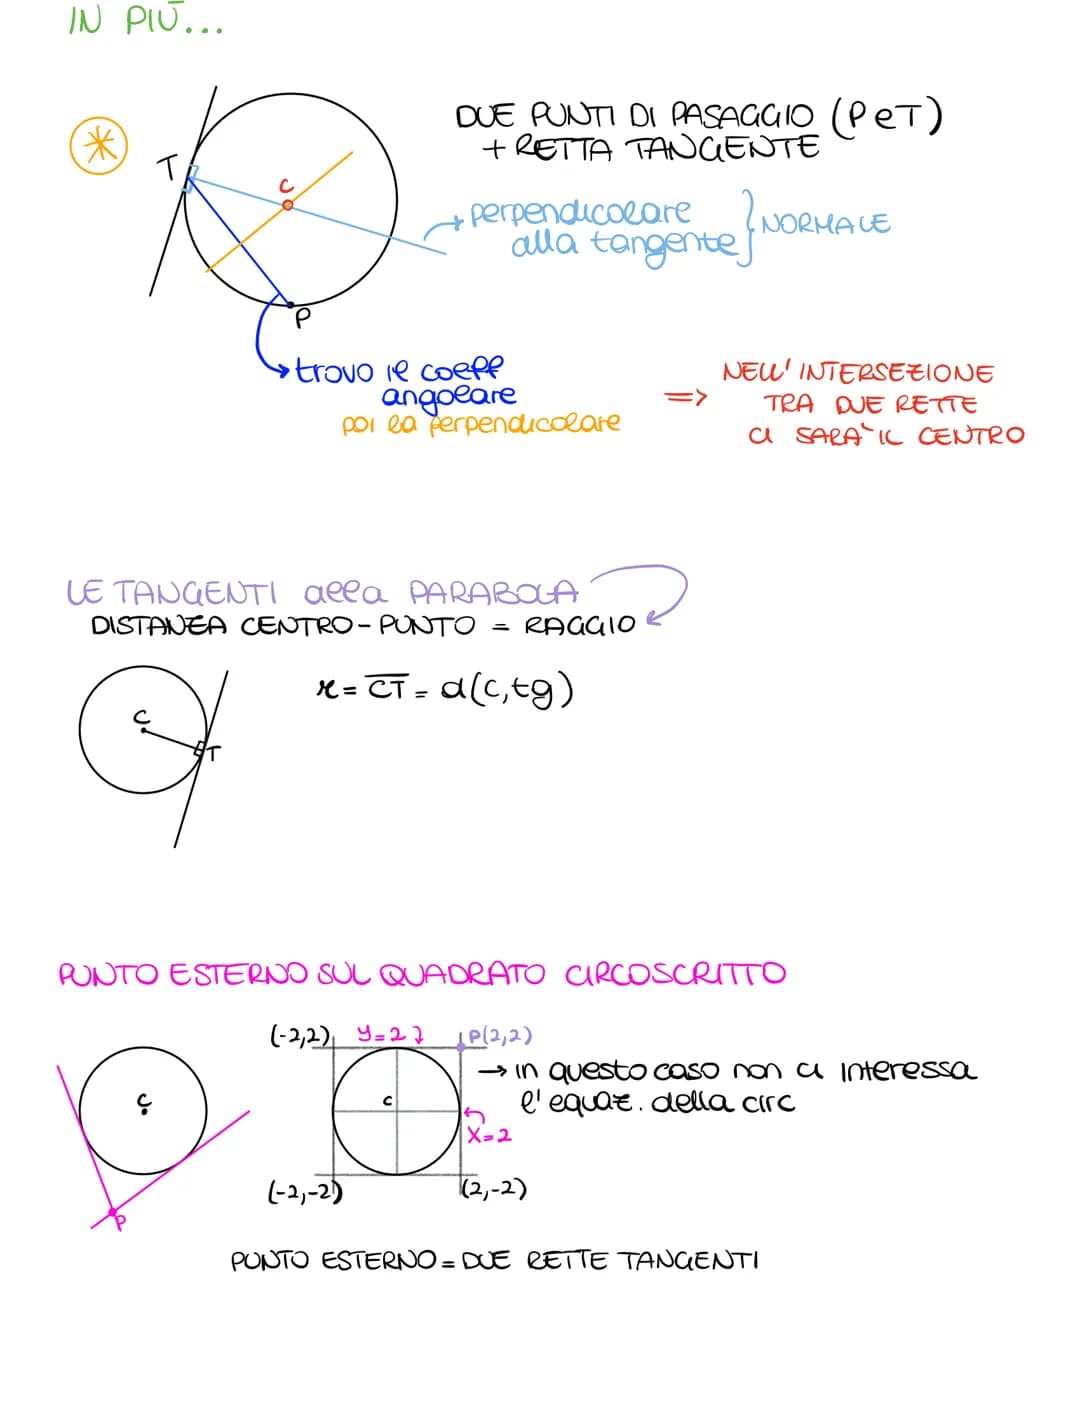 IN PIÙ...
DUE PUNTI DI PASAGGIO (P e T)
+ RETTA TANGENTE
T
C
perpendicolare
alla tangente } NORMALE
P
trovo il coeff
angolare
poi la perpendicolare
=> NELL' INTERSEZIONE
TRA DUE RETTE
CI SARA` IL CENTRO
LE TANGENTI alla PARABOLA
DISTANZA CENTRO - PUNTO = RAGGIO
r = CT = d(c,tg)
C
T
PUNTO ESTERNO SUL QUADRATO CIRCOSCRITTO
(-2,2) y=2 P(2,2)
→ in questo caso non ci interessa
l'equaz. della circ
C
C
X=2
(-2,-2) (2,-2)
P
PUNTO ESTERNO = DUE RETTE TANGENTI